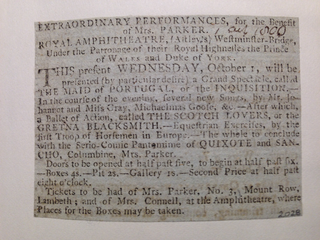 EXTRAORDINARY PERFORMANCES, for the Benefit
of Mrs. PARKER. Oct 1800
ROYAL AMPHITHEATRE, (Astley's) Westminster-Bridge,
Under the Patronage of their Royal Highnesses the Prince
of WALES and Duke of YORK.
THIS present WEDNESDAY, October 1, will be
presented (by particular desire) a Grand Spectacle, called
THE MAID of PORTUGAL, or the INQUISITION.—
In the course of the evening, several new Songs, by Mr. Jo-
hannot and Miss Gray, Eustachias Goose, &c.—After which,
a Ballet of Action, called THE SCOTCH LOVERS, at the
GRETNA BLACKSMITH.—Equestrian Exercises, by the
first Troop of Horsemen in Europe.—The whole to conclude
with the Serio-Comic Pantomime of QUIXOTE and SAN-
CHO, Columbine, Mrs. Parker.
Doors to be opened at half past five, to begin at half past six.
—Boxes 4s.—Pit 2s.—Gallery 1s.—Second Price at half past
eight o'clock.
Tickets to be had of Mrs. Parker, No. 3, Mount Row,
Lambeth; and of Mrs. Connell, at the Amphitheatre, where
Places for the Boxes may be taken.